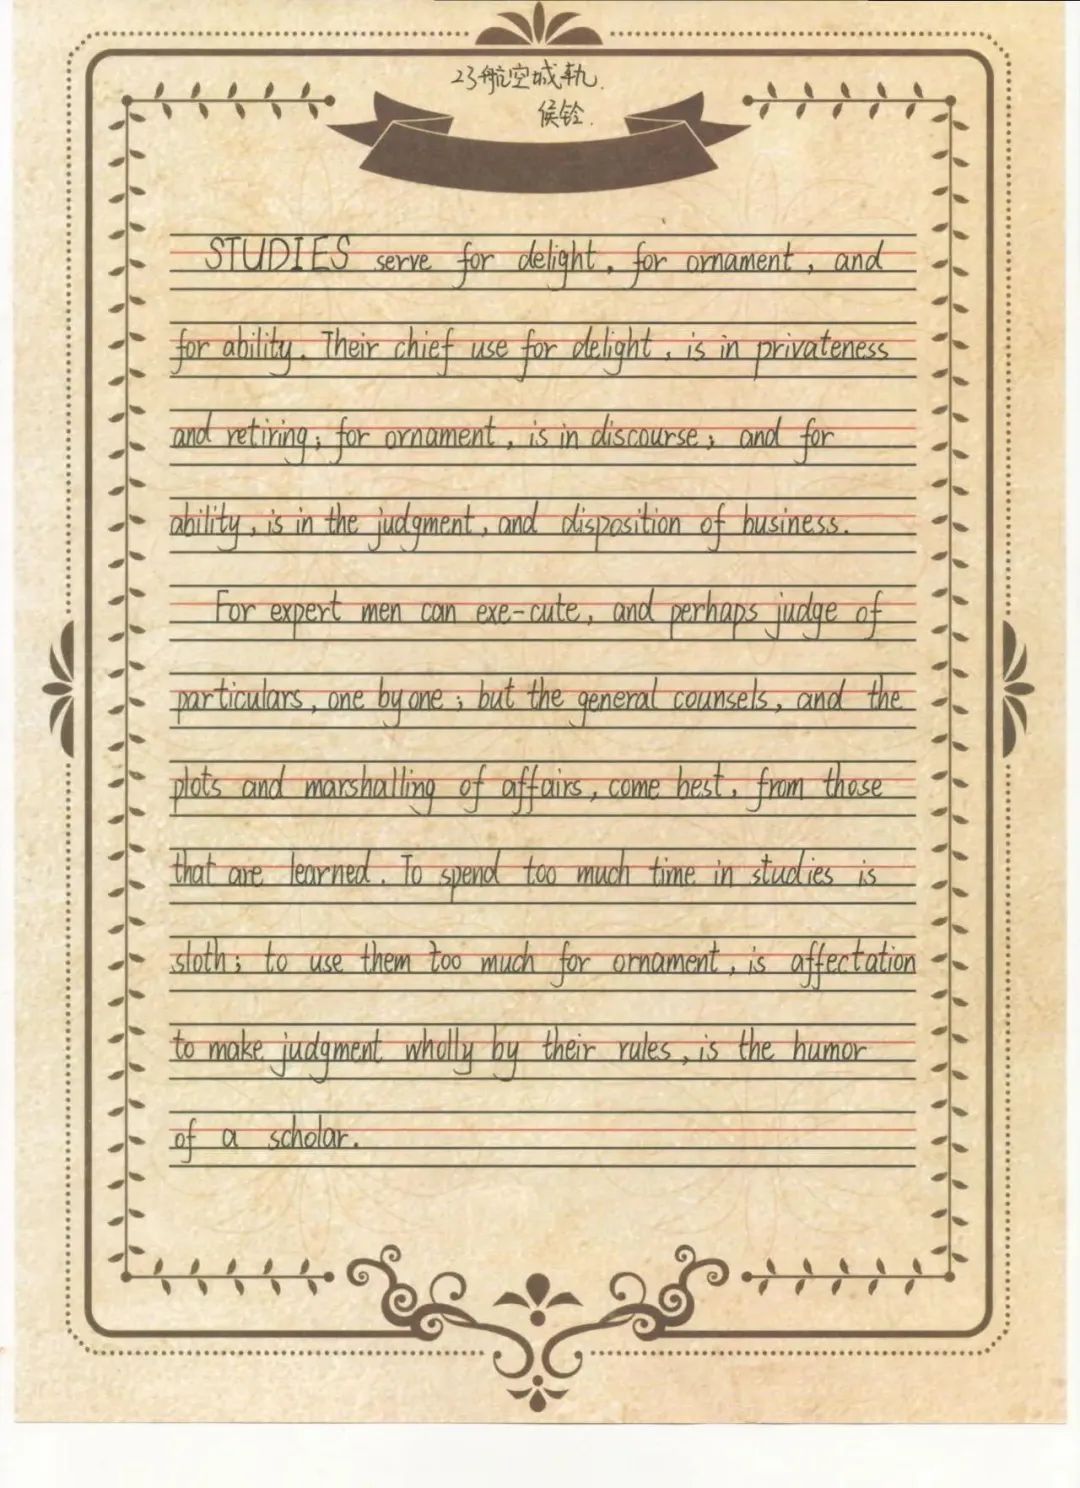 23航空城轨.
侯铨.
STUDIES serve for delight, for ornament, and
for ability. Their chief use for delight, is in privateness
and retiring; for ornament, is in discourse; and for
ability, is in the judgment, and disposition of business.
For expert men can exe-cute, and perhaps judge of
particulars, one by one; but the general counsels, and the
plots and marshalling of affairs, come best, from those
that are learned. To spend too much time in studies is
sloth; to use them too much for ornament, is affectation
to make judgment wholly by their rules, is the humor
of a scholar.